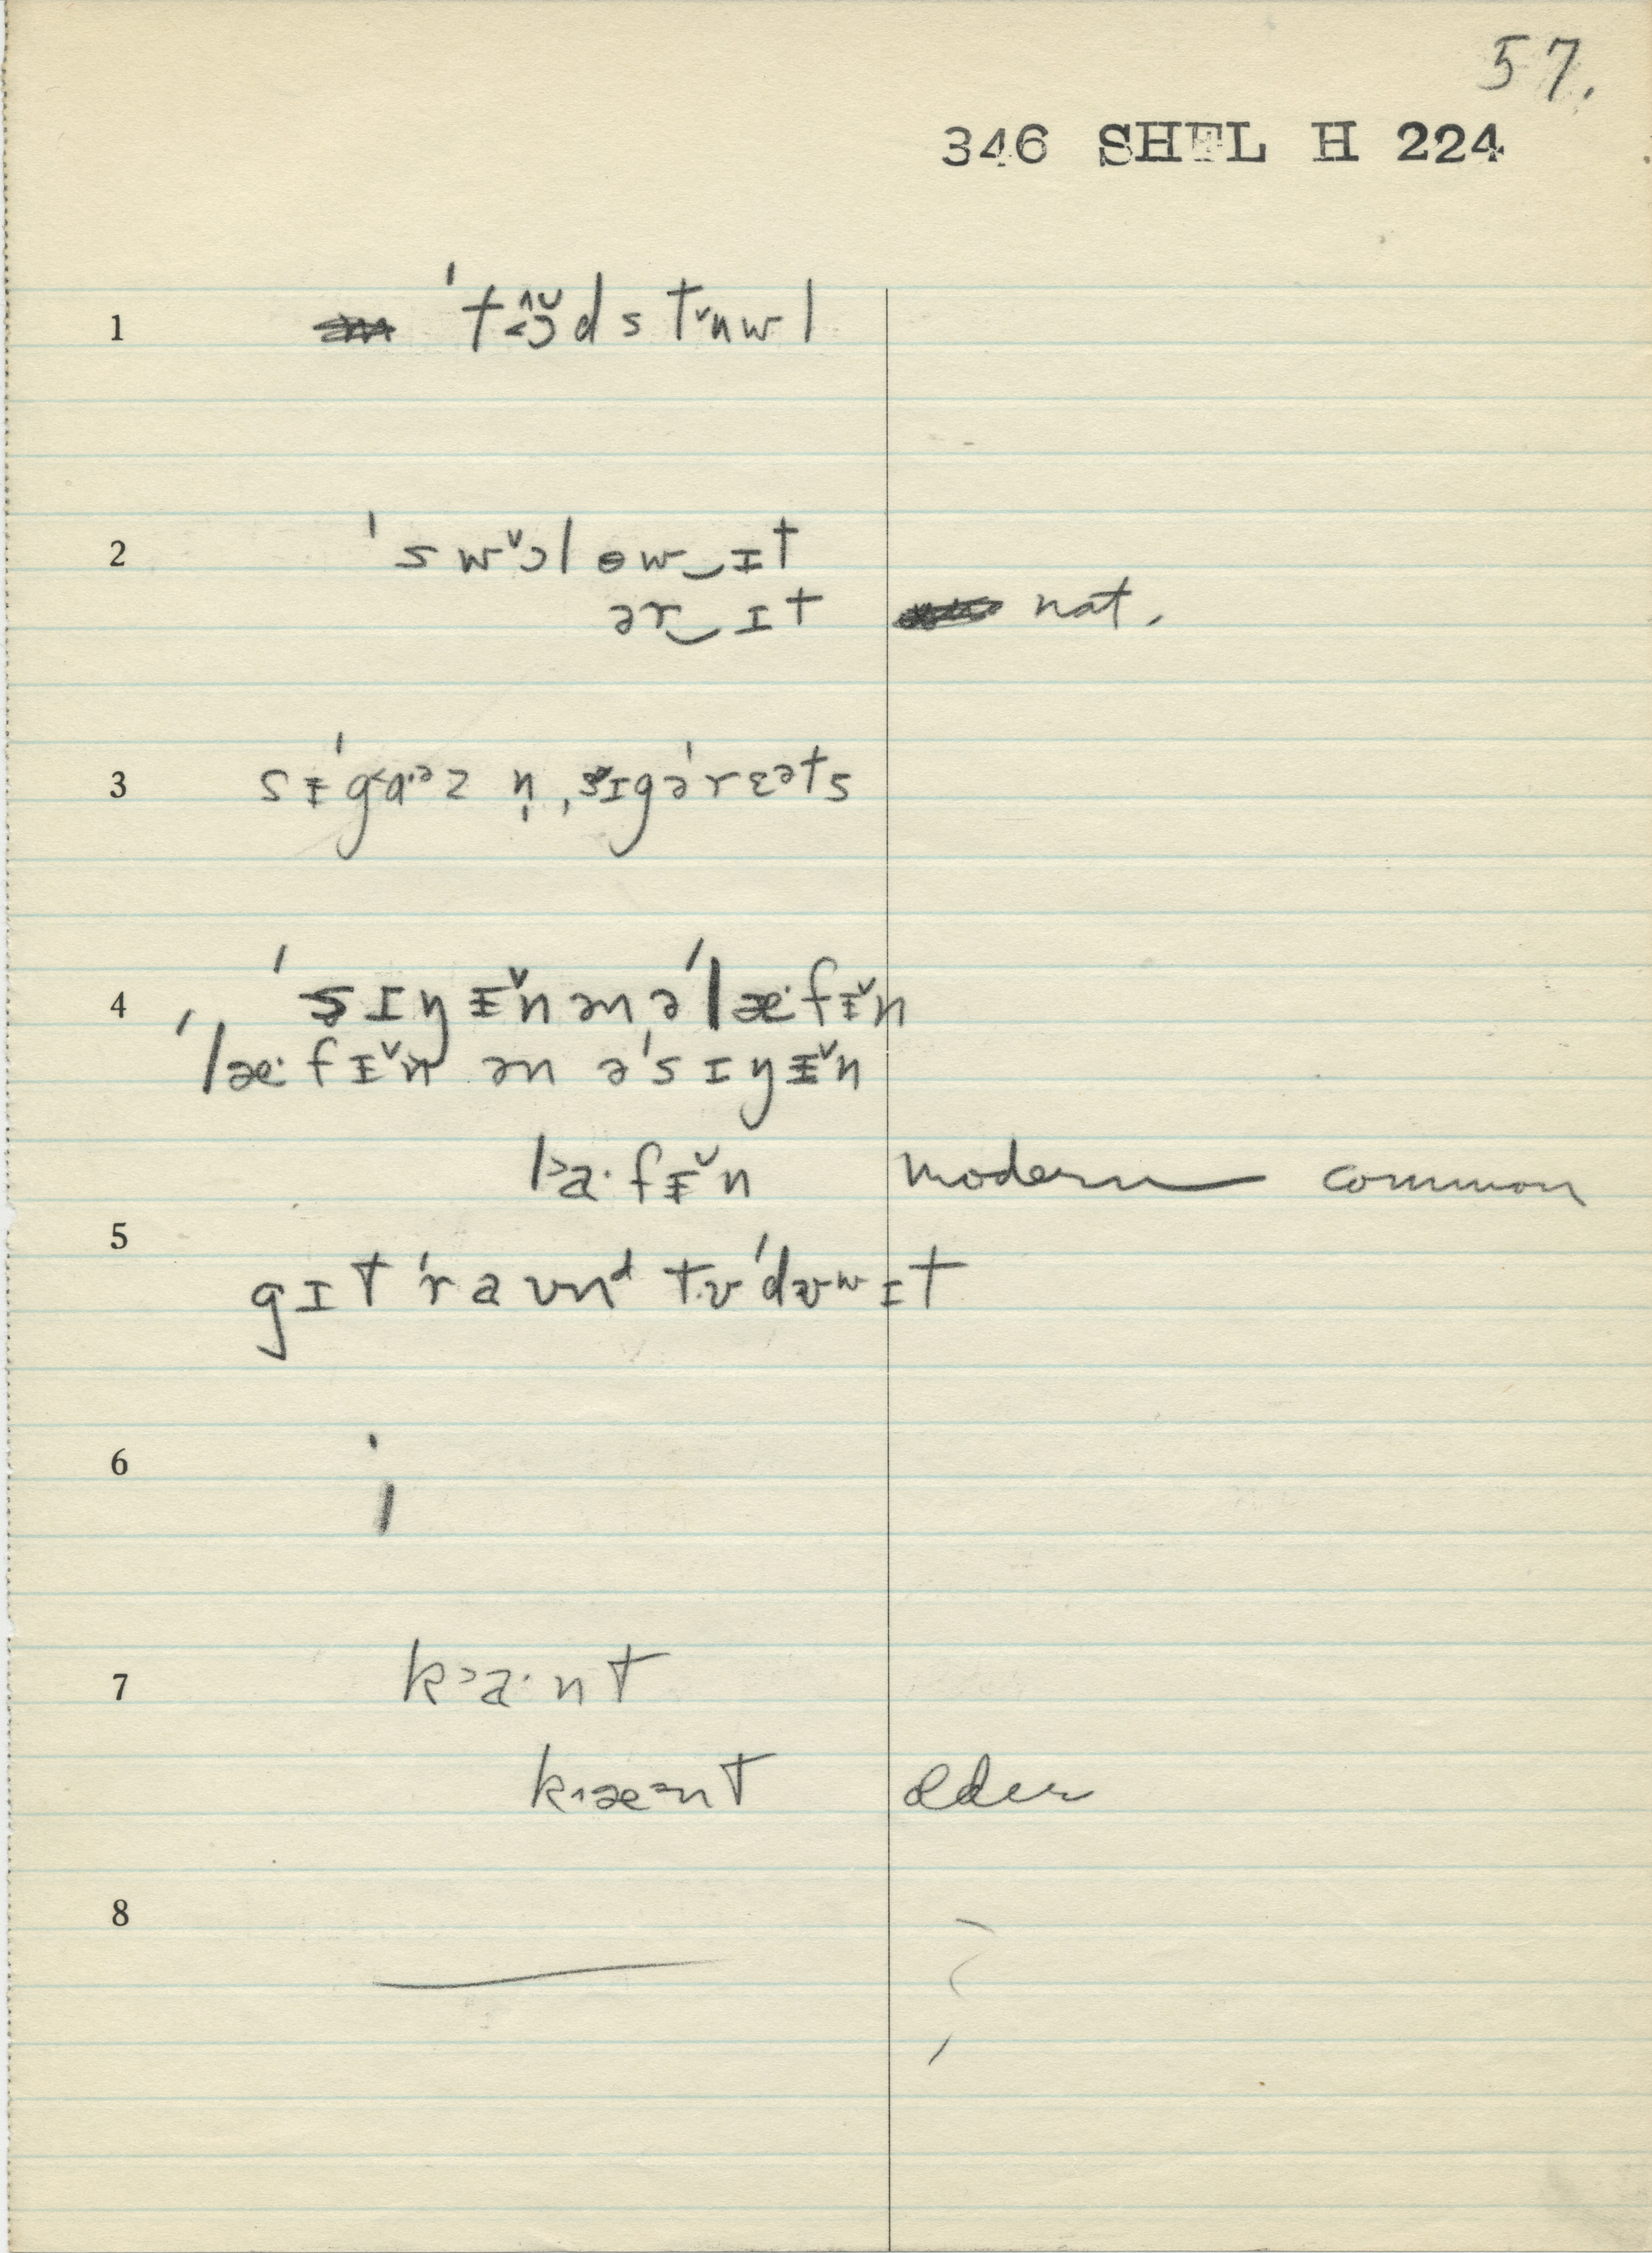 57.
346 SHEL H 224
1 ˈtɔ̆dstᵛuwl
2 ˈswᵛɔlɵw‿ɪt
ər‿ɪt nat.
3 sɨˈgɑ·ᵊz n̩ ˌsɪgəˈrɛᵊts
4 ˈsɪŋɨ̆n ən ə ˈlæ·fɨ̆n
ˈlæ·fɨ̆n ən ə ˈsɪŋɨ̆n
l˃a·fɨ̆n modern common
5 gɪt ˈraʊnᵈ tʊ ˈdʊʷɪt
6
7 k˃a·nt
kæᵊnt older
8 —